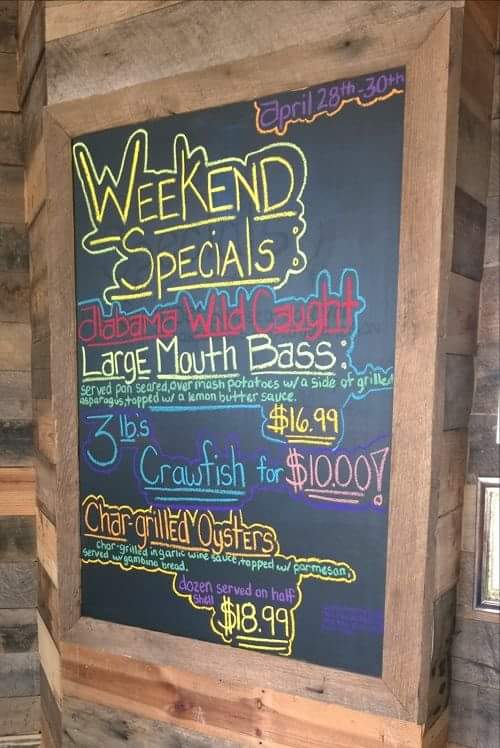 April 28th-30th
WEEKEND
Specials:
Alabama Wild Caught
Large Mouth Bass:
served pan seared, over mash potatoes w/ a side of grilled
asparagus, topped w/ a lemon butter sauce.
$16.99
3 lb.s
Crawfish for $10.00!
Char-grilled Oysters
Char-grilled in garlic wine sauce, topped w/ parmesan,
served w/ gambino bread.
dozen served on half
shell
$18.99